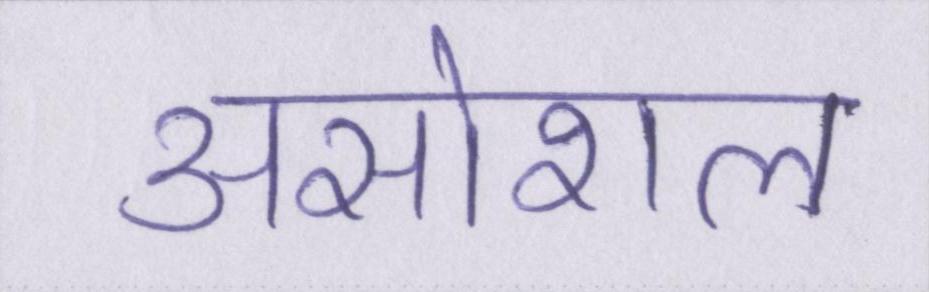 असोशल